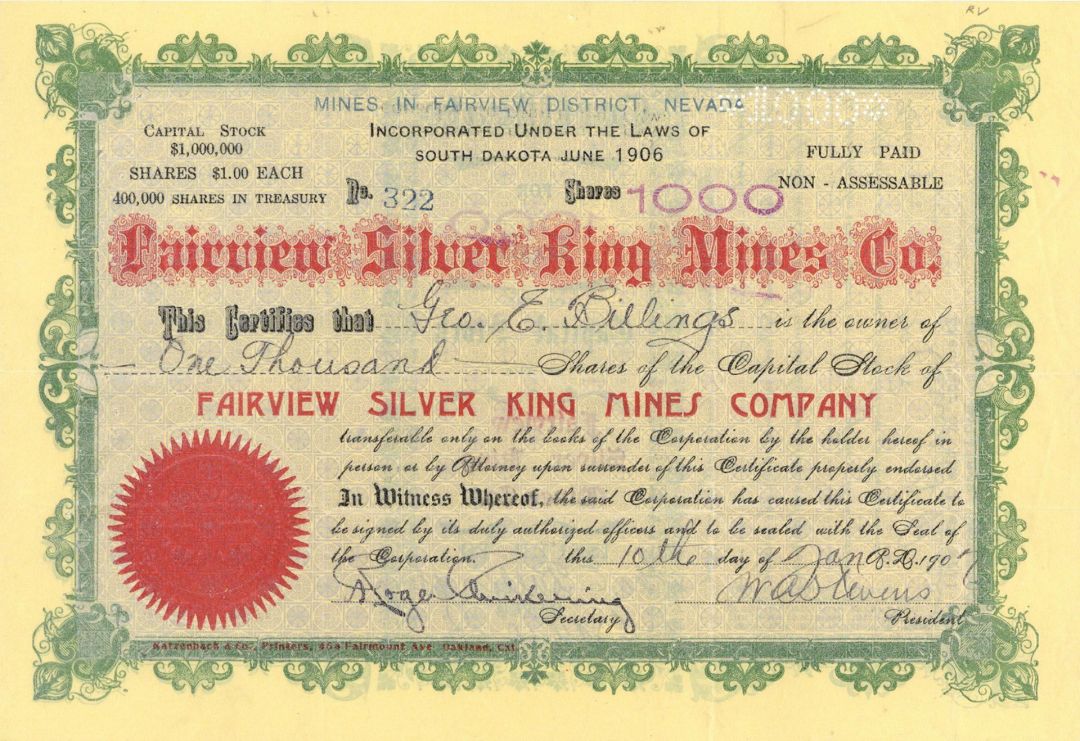 RV
MINES IN FAIRVIEW DISTRICT, NEVADA
CAPITAL STOCK
$1,000,000
SHARES $1.00 EACH
400,000 SHARES IN TREASURY
INCORPORATED UNDER THE LAWS OF
SOUTH DAKOTA JUNE 1906
FULLY PAID
NON - ASSESSABLE
No. 322 Shares 1000
Fairview Silver King Mines Co.
This Certifies that Geo. E. Billings is the owner of
One Thousand Shares of the Capital Stock of
FAIRVIEW SILVER KING MINES COMPANY
transferable only on the books of the Corporation by the holder hereof in
person or by Attorney upon surrender of this Certificate properly endorsed
In Witness Whereof, the said Corporation has caused this Certificate to
be signed by its duly authorized officers and to be sealed with the Seal of
the Corporation. this 10th day of Jan A.D. 190
W A Stevens
Secretary President
Katzenbach & Co., Printers, 464 Fairmount Ave. Oakland, Cal.